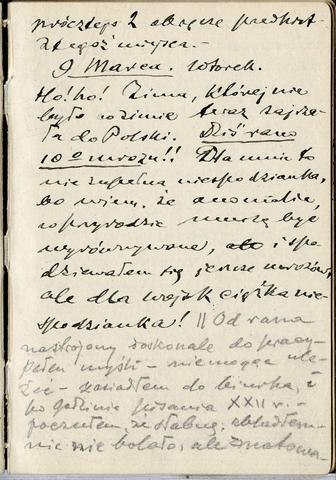 prócz tego 2 okręgi przedkrst
z tegoż miejsca.-
9 Marca. Wtorek.
Ho! ho! Zima, której nie
było w zimie teraz zajrza-
ła do Polski. Dziś rano
10° mrozu!! Dla mnie to
nie zupełna niespodzianka,
bo wiem, że anomalia,
w przyrodzie muszą być
wyrównywane, i spo
dziewałem się jeszcze mrozów,
ale dla wojsk ciężka nie-
spodzianka! || Od rana
nastrojony doskonale do pracy
pełen myśli - niemogąc ule-
żeć - zasiadłem do biurka, i
po godzinie pisania XXII r. -
poczułem, że słabnę; zbladłem-
nic nie bolało, ale